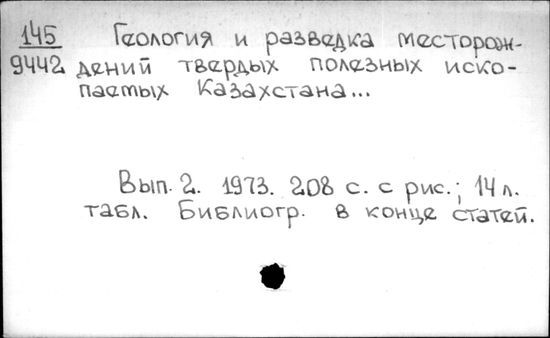 145 Геология и разведка месторож-
9442 дений твердых полезных иско-
паемых Казахстана...
Вып. 2. 1973. 208 с. с рис.; 14 л.
табл. Библиогр. в конце статей.